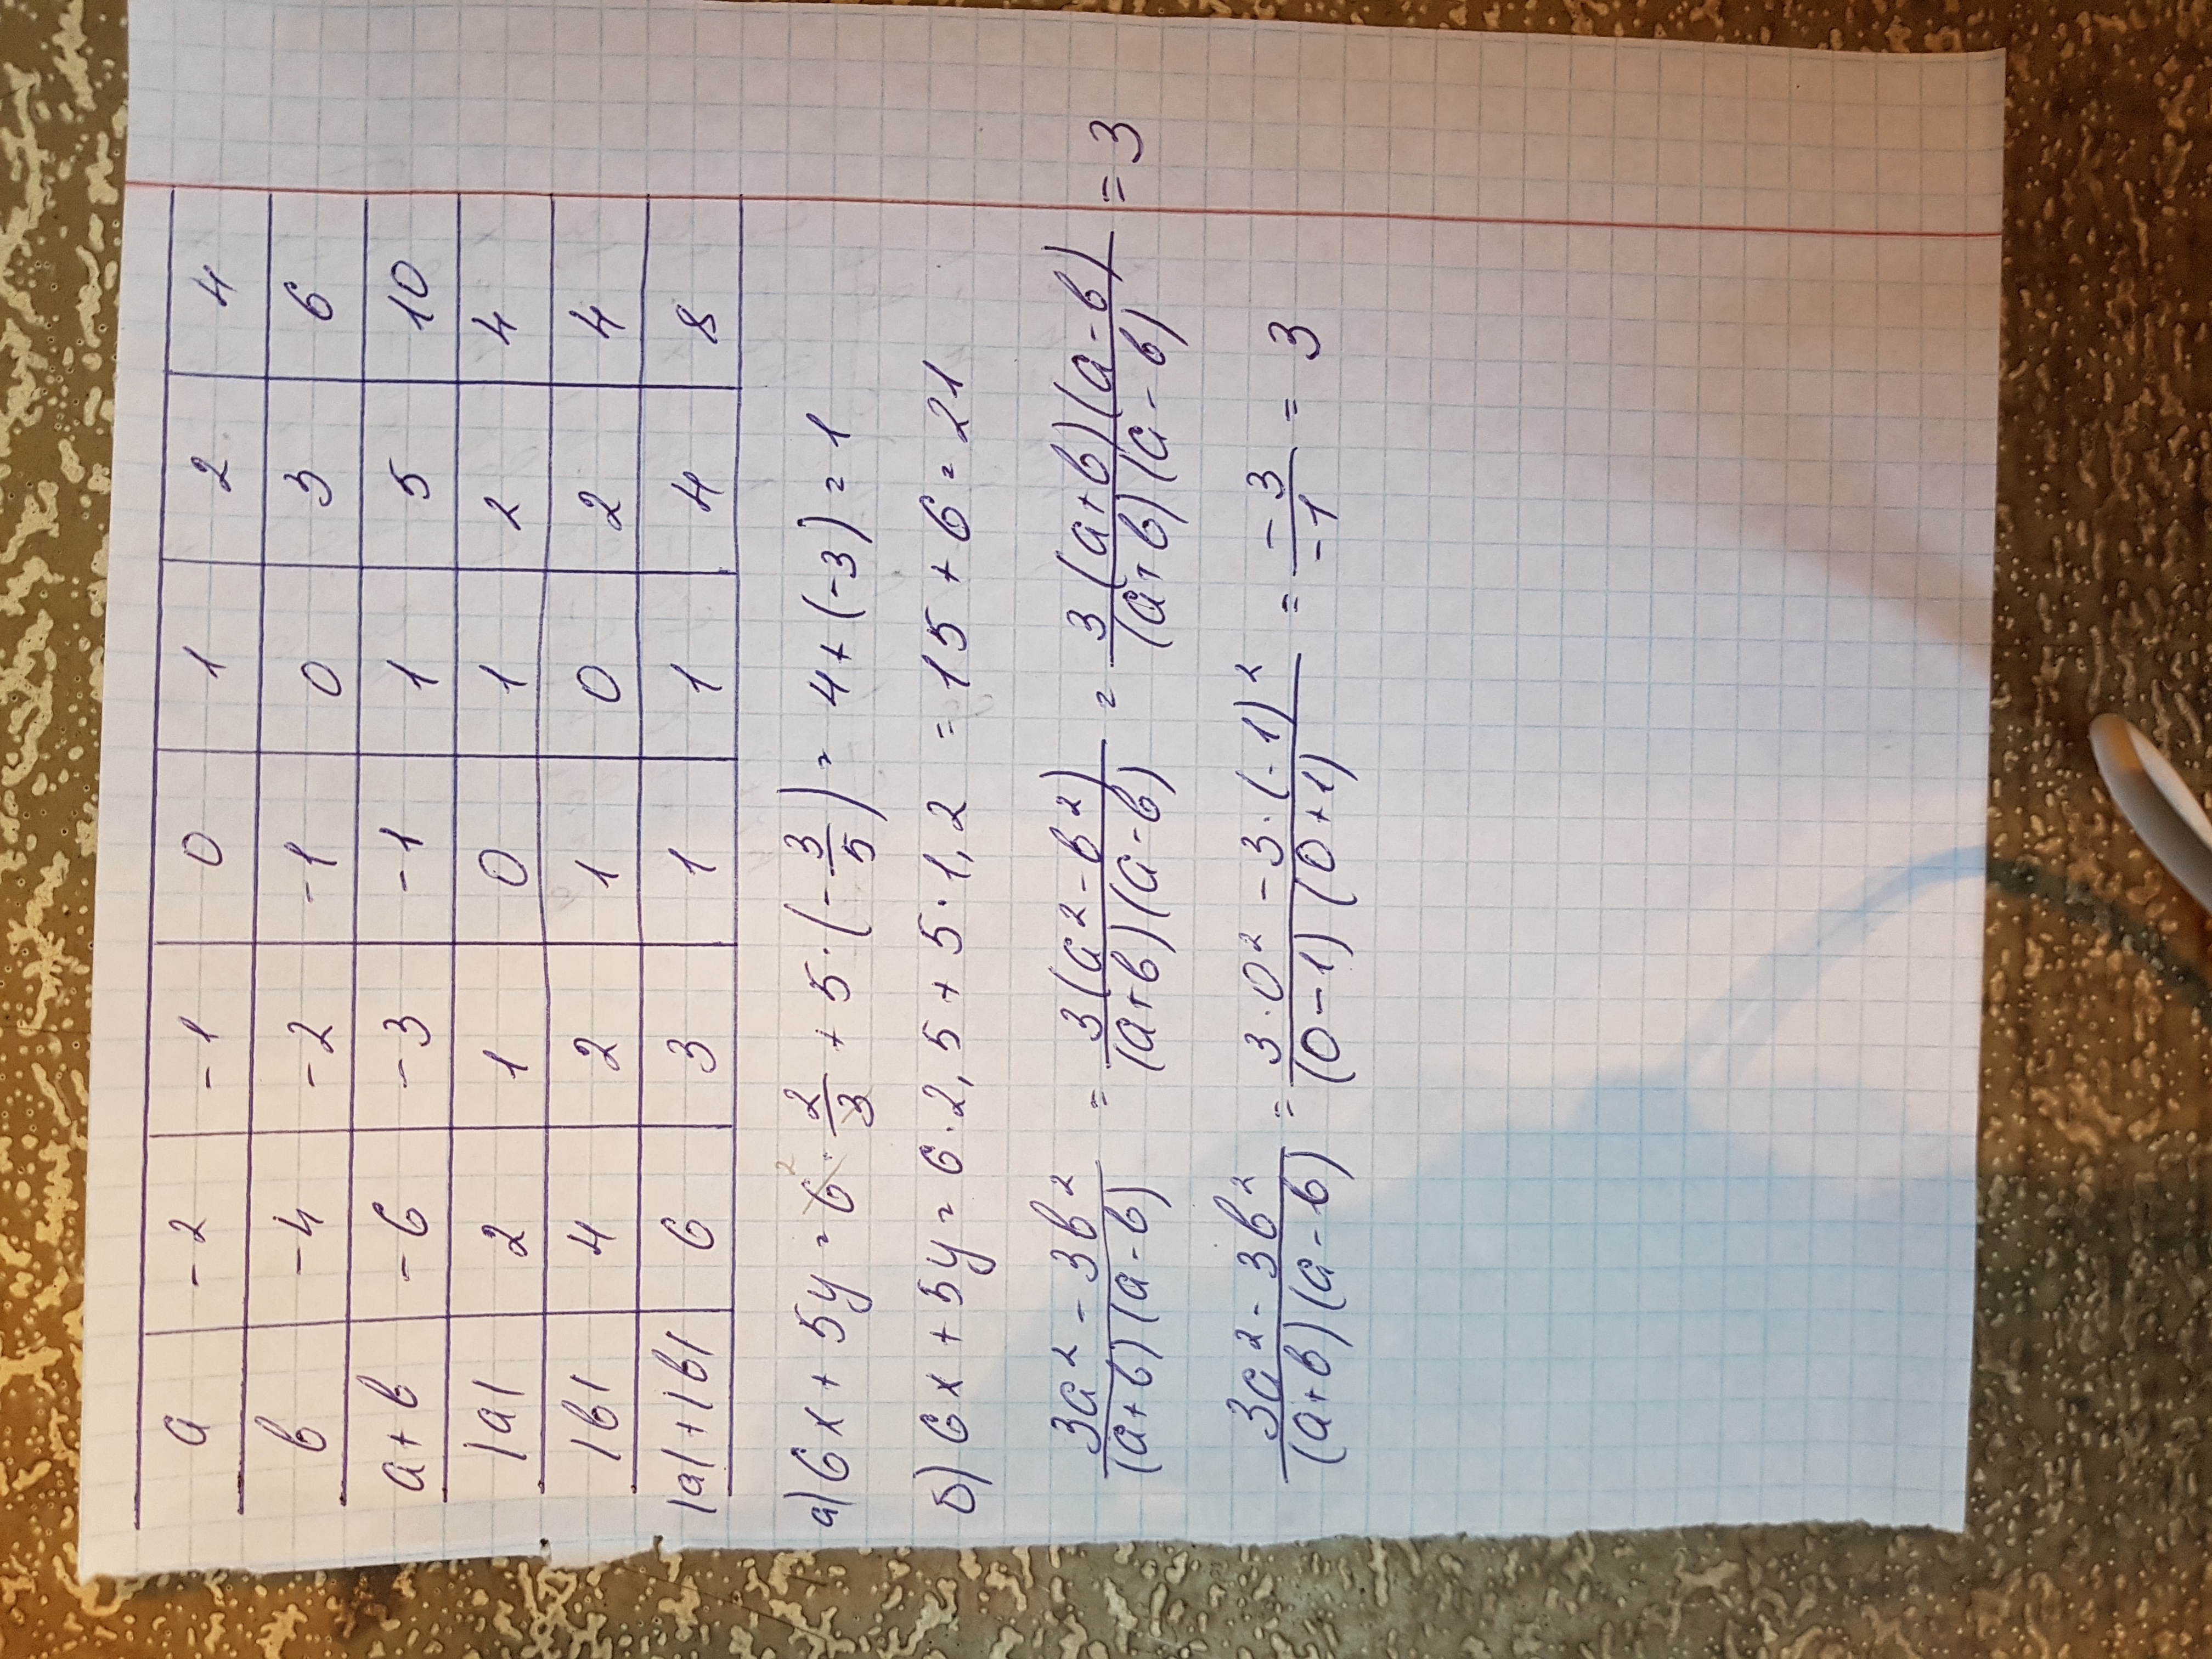 a -2 -1 0 1 2 4
в -4 -2 -1 0 3 6
a+в -6 -3 -1 1 5 10
|a| 2 1 0 1 2 4
|в| 4 2 1 0 2 4
|a|+|в| 6 3 1 1 4 8
а) 6x + 5y = 6² · 2/3 + 5 · (-3/5) = 4 + (-3) = 1
б) 6x + 5y = 6 · 2,5 + 5 · 1,2 = 15 + 6 = 21
3a² - 3в² / (a+в)(a-в) = 3(a² - в²) / (a+в)(a-в) = 3(a+в)(a-в) / (a+в)(a-в) = 3
3a² - 3в² / (a+в)(a-в) = 3 · 0² - 3 · (-1)² / (0-1)(0+1) = -3 / -1 = 3